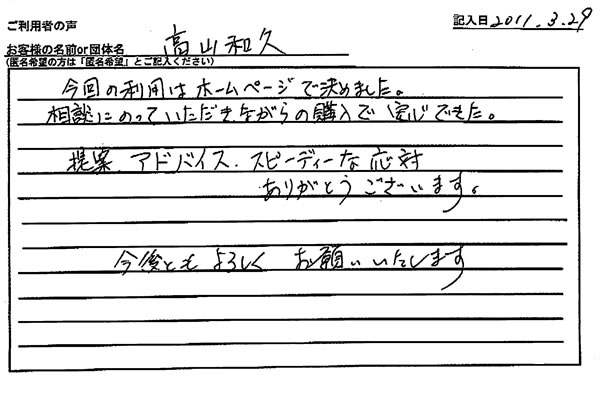 ご利用者の声
記入日 2011.3.29
お客様の名前or団体名 高山和久
(匿名希望の方は「匿名希望」とご記入ください)
今回の利用はホームページで決めました。
相談にのっていただきながらの購入で安心できた。
提案、アドバイス、スピーディーな応対
ありがとうございます。
今後ともよろしくお願いいたします